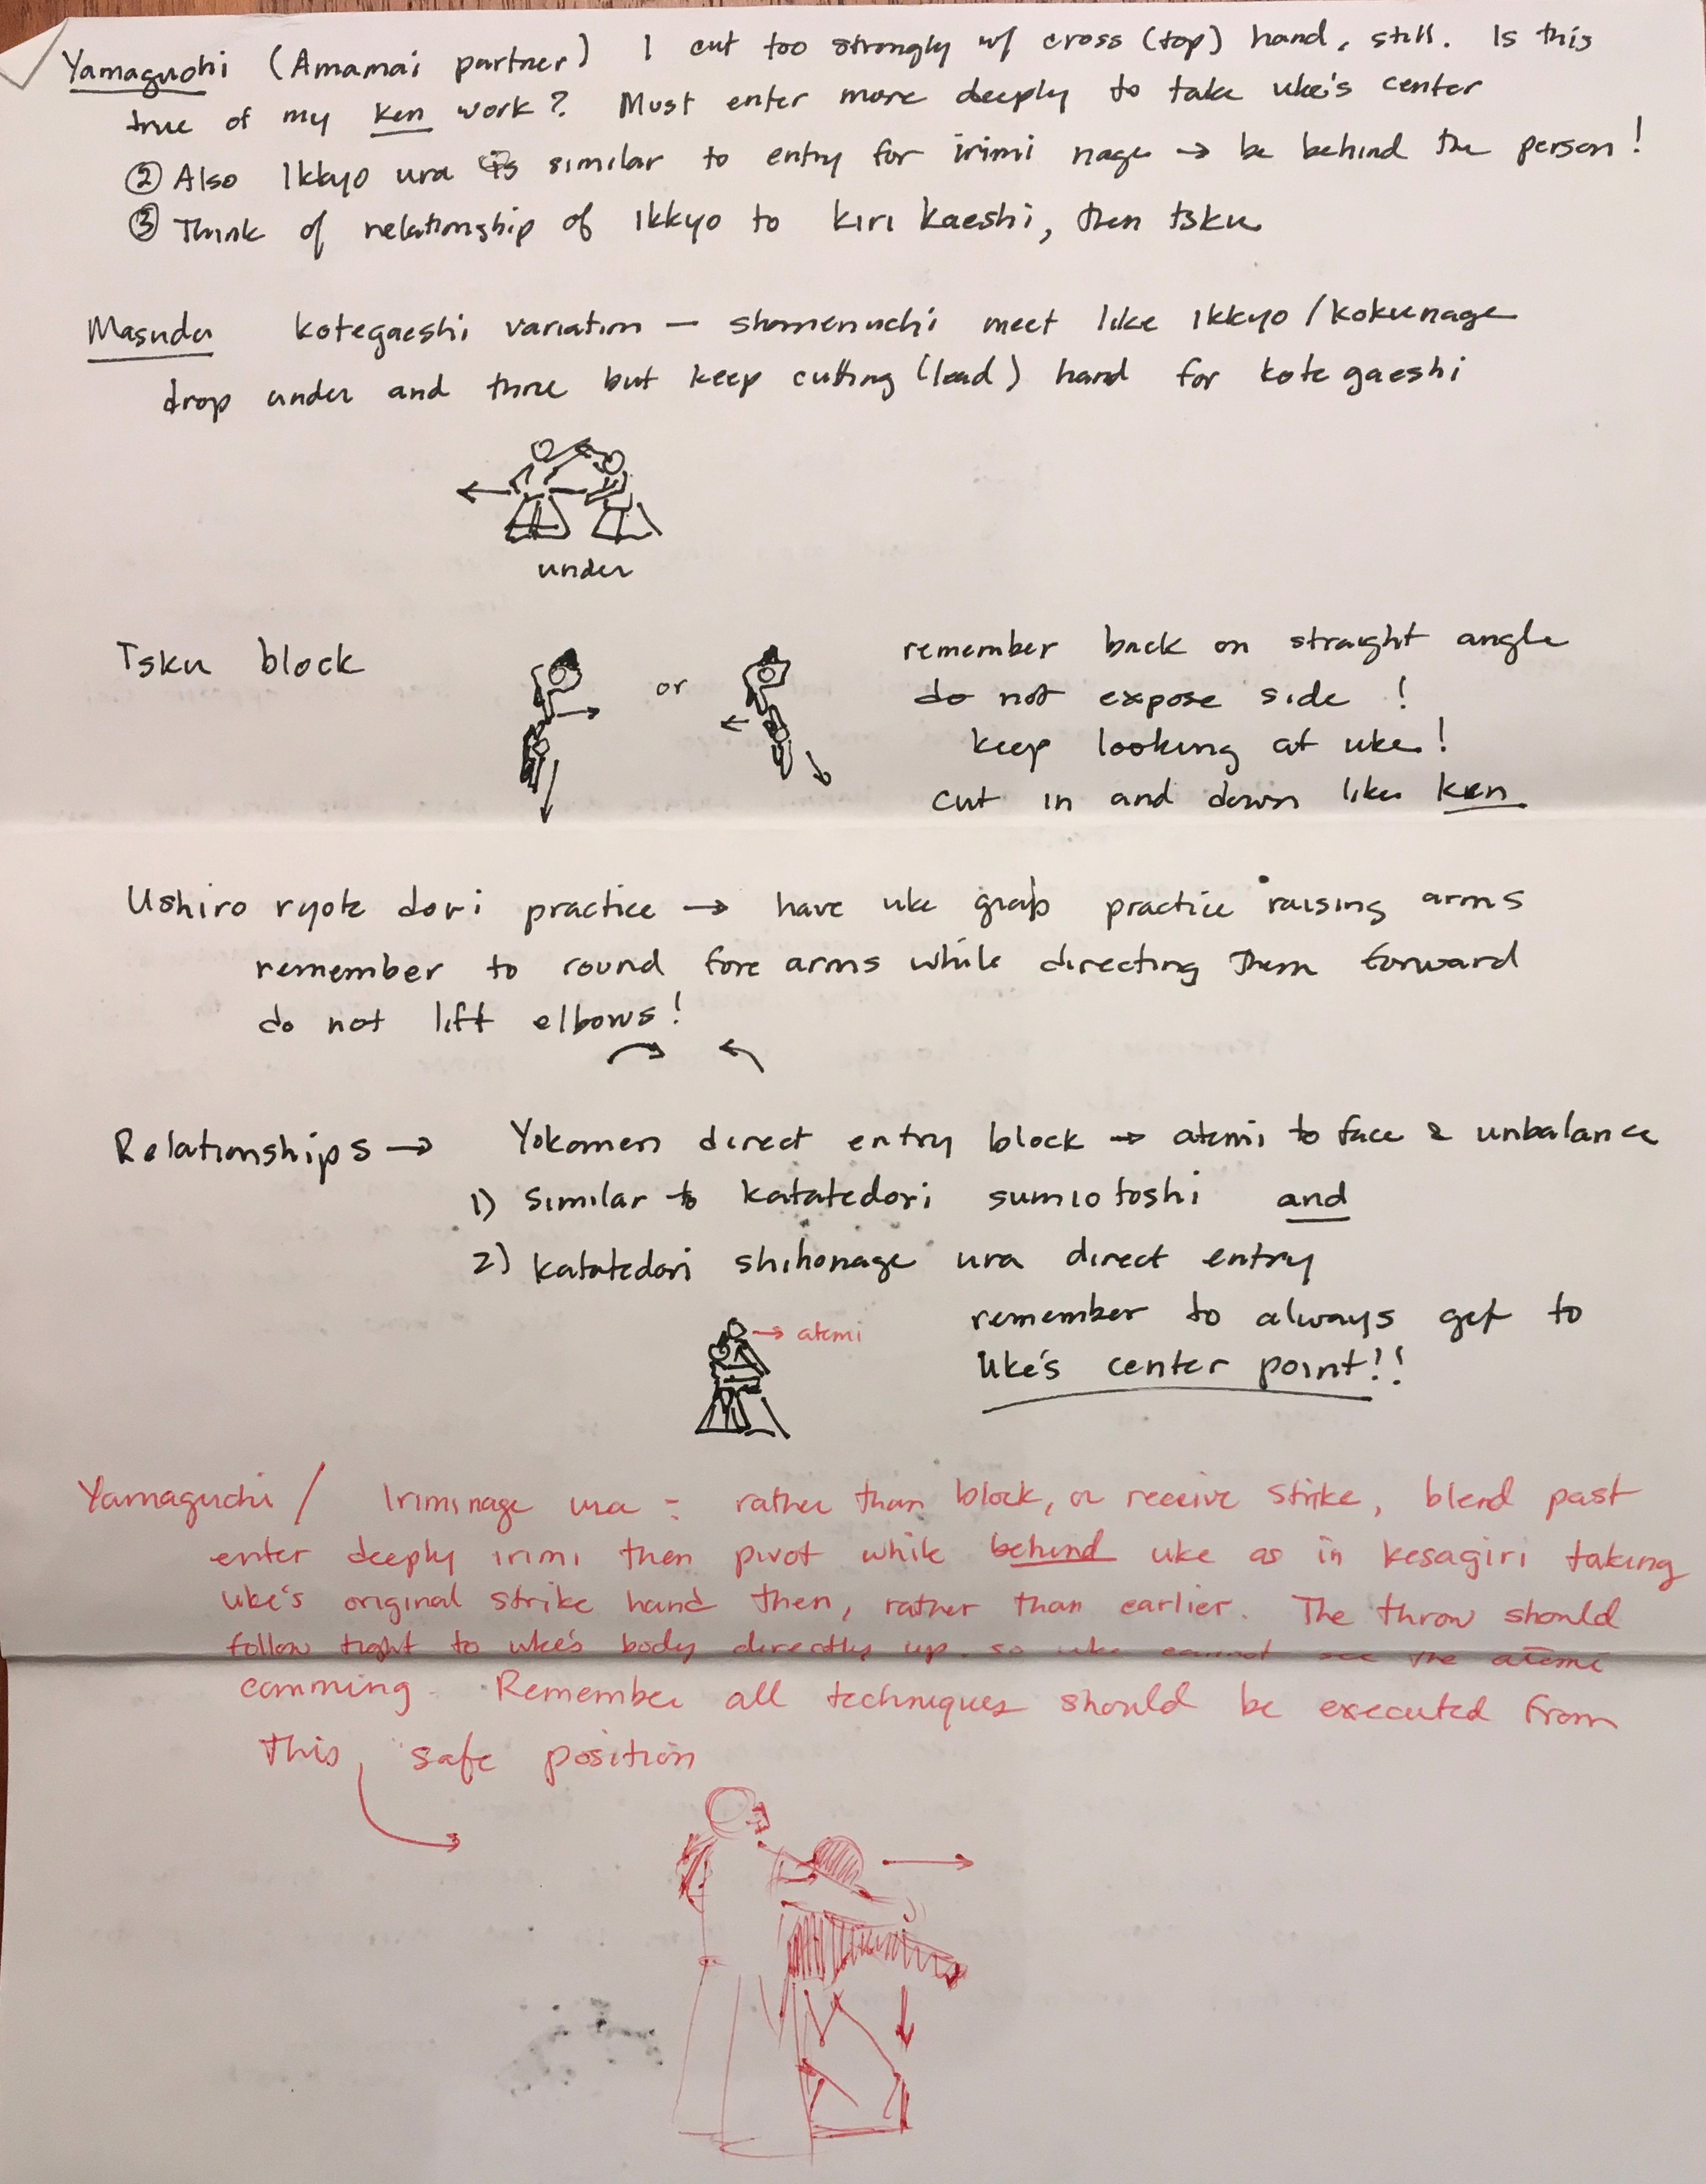 Yamaguchi (Amamai partner) I cut too strongly w/ cross (top) hand, still. Is this
true of my ken work? Must enter more deeply to take uke's center
② Also Ikkyo ura is similar to entry for irimi nage → be behind the person!
③ Think of relationship of Ikkyo to kiri kaeshi, then tsku
Masuda kotegaeshi variation — shomenuchi meet like Ikkyo/kokunage
drop under and thru but keep cutting (lead) hand for kote gaeshi
under
Tsku block
or
remember back on straight angle
do not expose side!
keep looking at uke!
cut in and down like ken
Ushiro ryote dori practice → have uke grab practice raising arms
remember to round fore arms while directing them forward
do not lift elbows!
Relationships → Yokomen direct entry block → atemi to face & unbalance
1) similar to katatedori sumiotoshi and
2) katatedori shihonage ura direct entry
→ atemi
remember to always get to
uke's center point!!
Yamaguchi / Iriminage ura = rather than block, or receive strike, blend past
enter deeply irimi then pivot while behind uke as in kesagiri taking
uke's original strike hand then, rather than earlier. The throw should
follow tight to uke's body directly up. so uke cannot see the atemi
comming. Remember all techniques should be executed from
this safe position